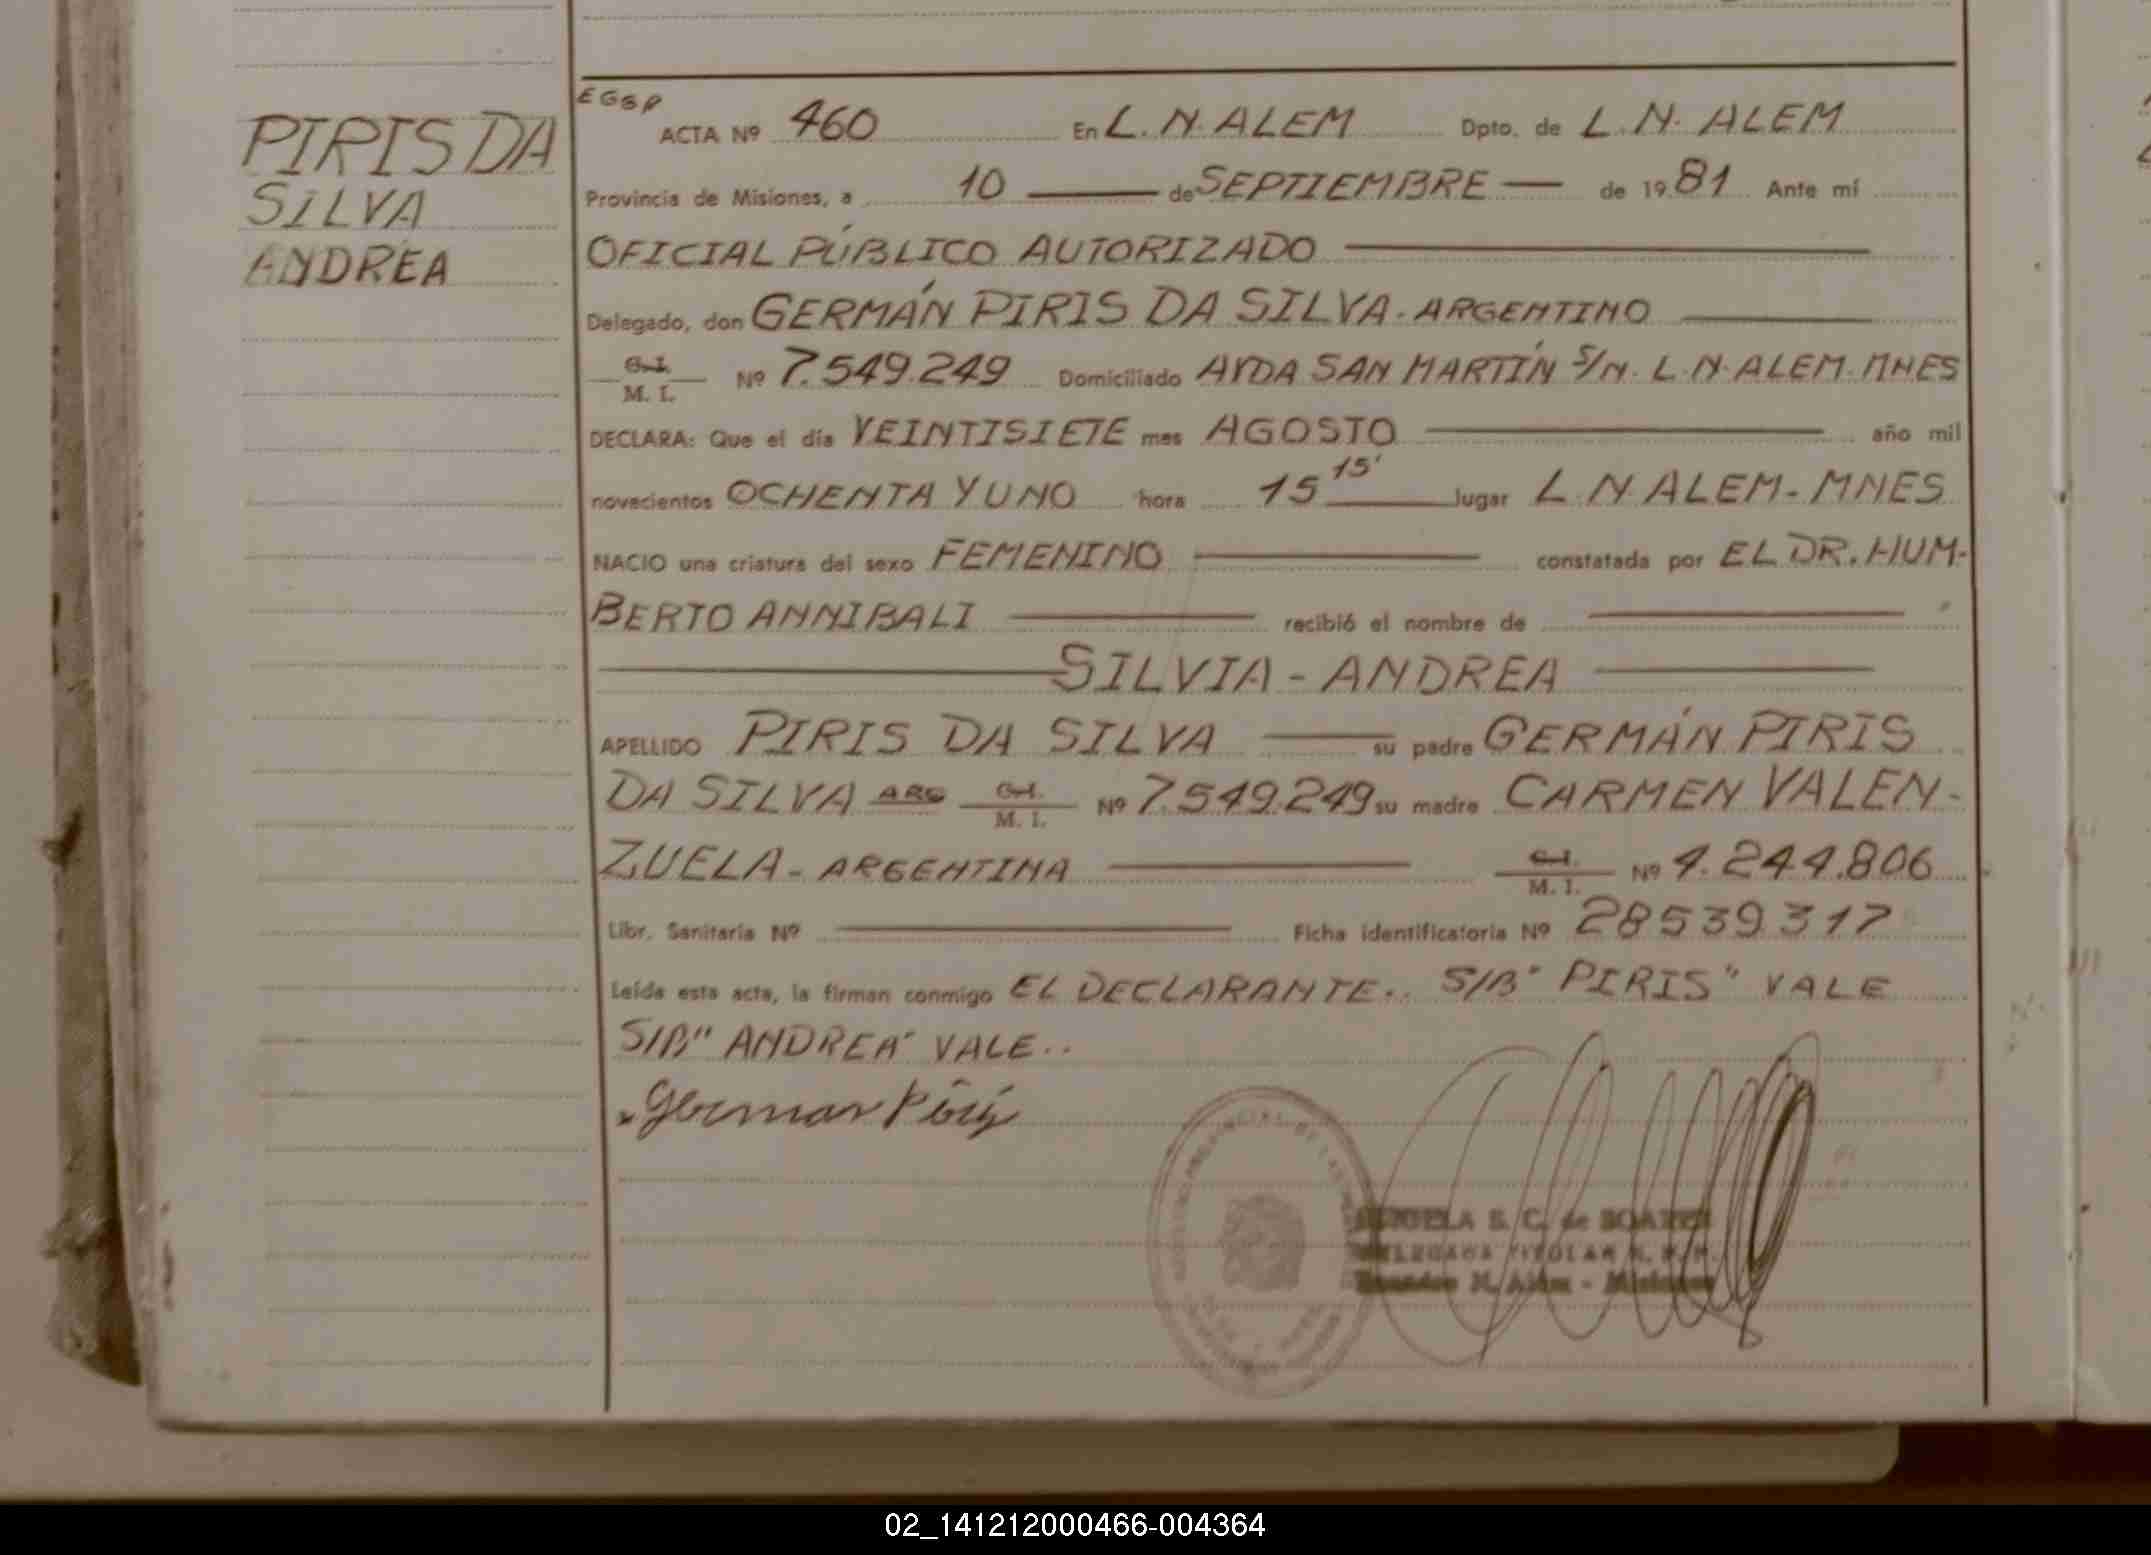 PIRIS DA
SILVA
ANDREA
EGSP
ACTA Nº 460 En L. N. ALEM Dpto. de L. N. ALEM
Provincia de Misiones, a 10 de SEPTIEMBRE de 1981 Ante mí
OFICIAL PÚBLICO AUTORIZADO
Delegado, don GERMÁN PIRIS DA SILVA. ARGENTINO
C.I. M. I. Nº 7.549.249 Domiciliado AVDA SAN MARTÍN S/N. L. N. ALEM. MNES
DECLARA: Que el día VEINTISIETE mes AGOSTO año mil
novecientos OCHENTA Y UNO hora 15 15' lugar L. N. ALEM - MNES
NACIO una criatura del sexo FEMENINO constatada por EL DR. HUM-
BERTO ANNIBALI recibió el nombre de
SILVIA - ANDREA
APELLIDO PIRIS DA SILVA su padre GERMÁN PIRIS
DA SILVA ARG C.I. M. I. Nº 7.549.249 su madre CARMEN VALEN-
ZUELA - ARGENTINA C.I. M. I. Nº 4.244.806
Libr. Sanitaria Nº Ficha identificatoria Nº 28539317
Leída esta acta, la firman conmigo EL DECLARANTE.. S/B" PIRIS" VALE
S/B" ANDREA" VALE..
German Piris
S. C. de
DELEGADA TITULAR R. P. P.
Leandro N. Alem - Misiones
02_141212000466-004364